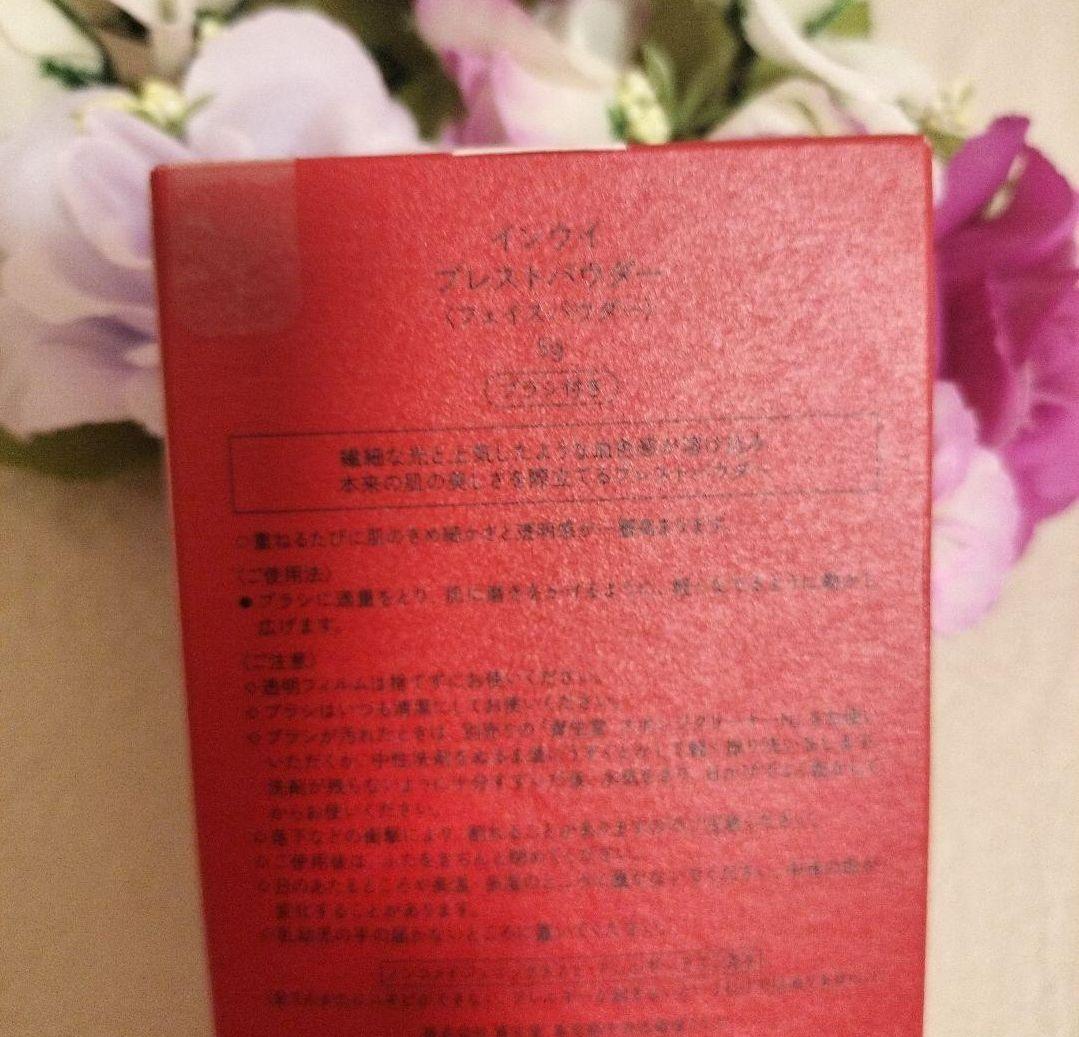 インウイ
プレストパウダー
〈フェイスパウダー〉
5g
ブラシ付き
繊細な光と上気したような血色感が溶け込み
本来の肌の美しさを際立てるプレストパウダー
◇重ねるたびに肌のきめ細かさと透明感が一層高まります。
〈ご使用法〉
●ブラシに適量をとり、肌に磨きをかけるように、軽く
広げます。
〈ご注意〉
◇透明フィルムは捨てずにお使いください。
◇ブラシはいつも清潔にしてお使いください。
◇ブラシが汚れたときは、別売りの「資生堂 スポンジクリーナーN」をお使い
いただくか、中性洗剤をぬるま湯にうすくとかして軽く振り洗いをします。
洗剤が残らないように十分すすいだ後、水気をきり、日かげでよく乾かして
からお使いください。
◇落下などの衝撃により、割れることがありますのでご注意ください。
◇ご使用後は、ふたをきちんと閉めてください。
◇日のあたるところや高温・多湿のところに置かないでください。
変化することがあります。
◇乳幼児の手の届かないところに置いてください。